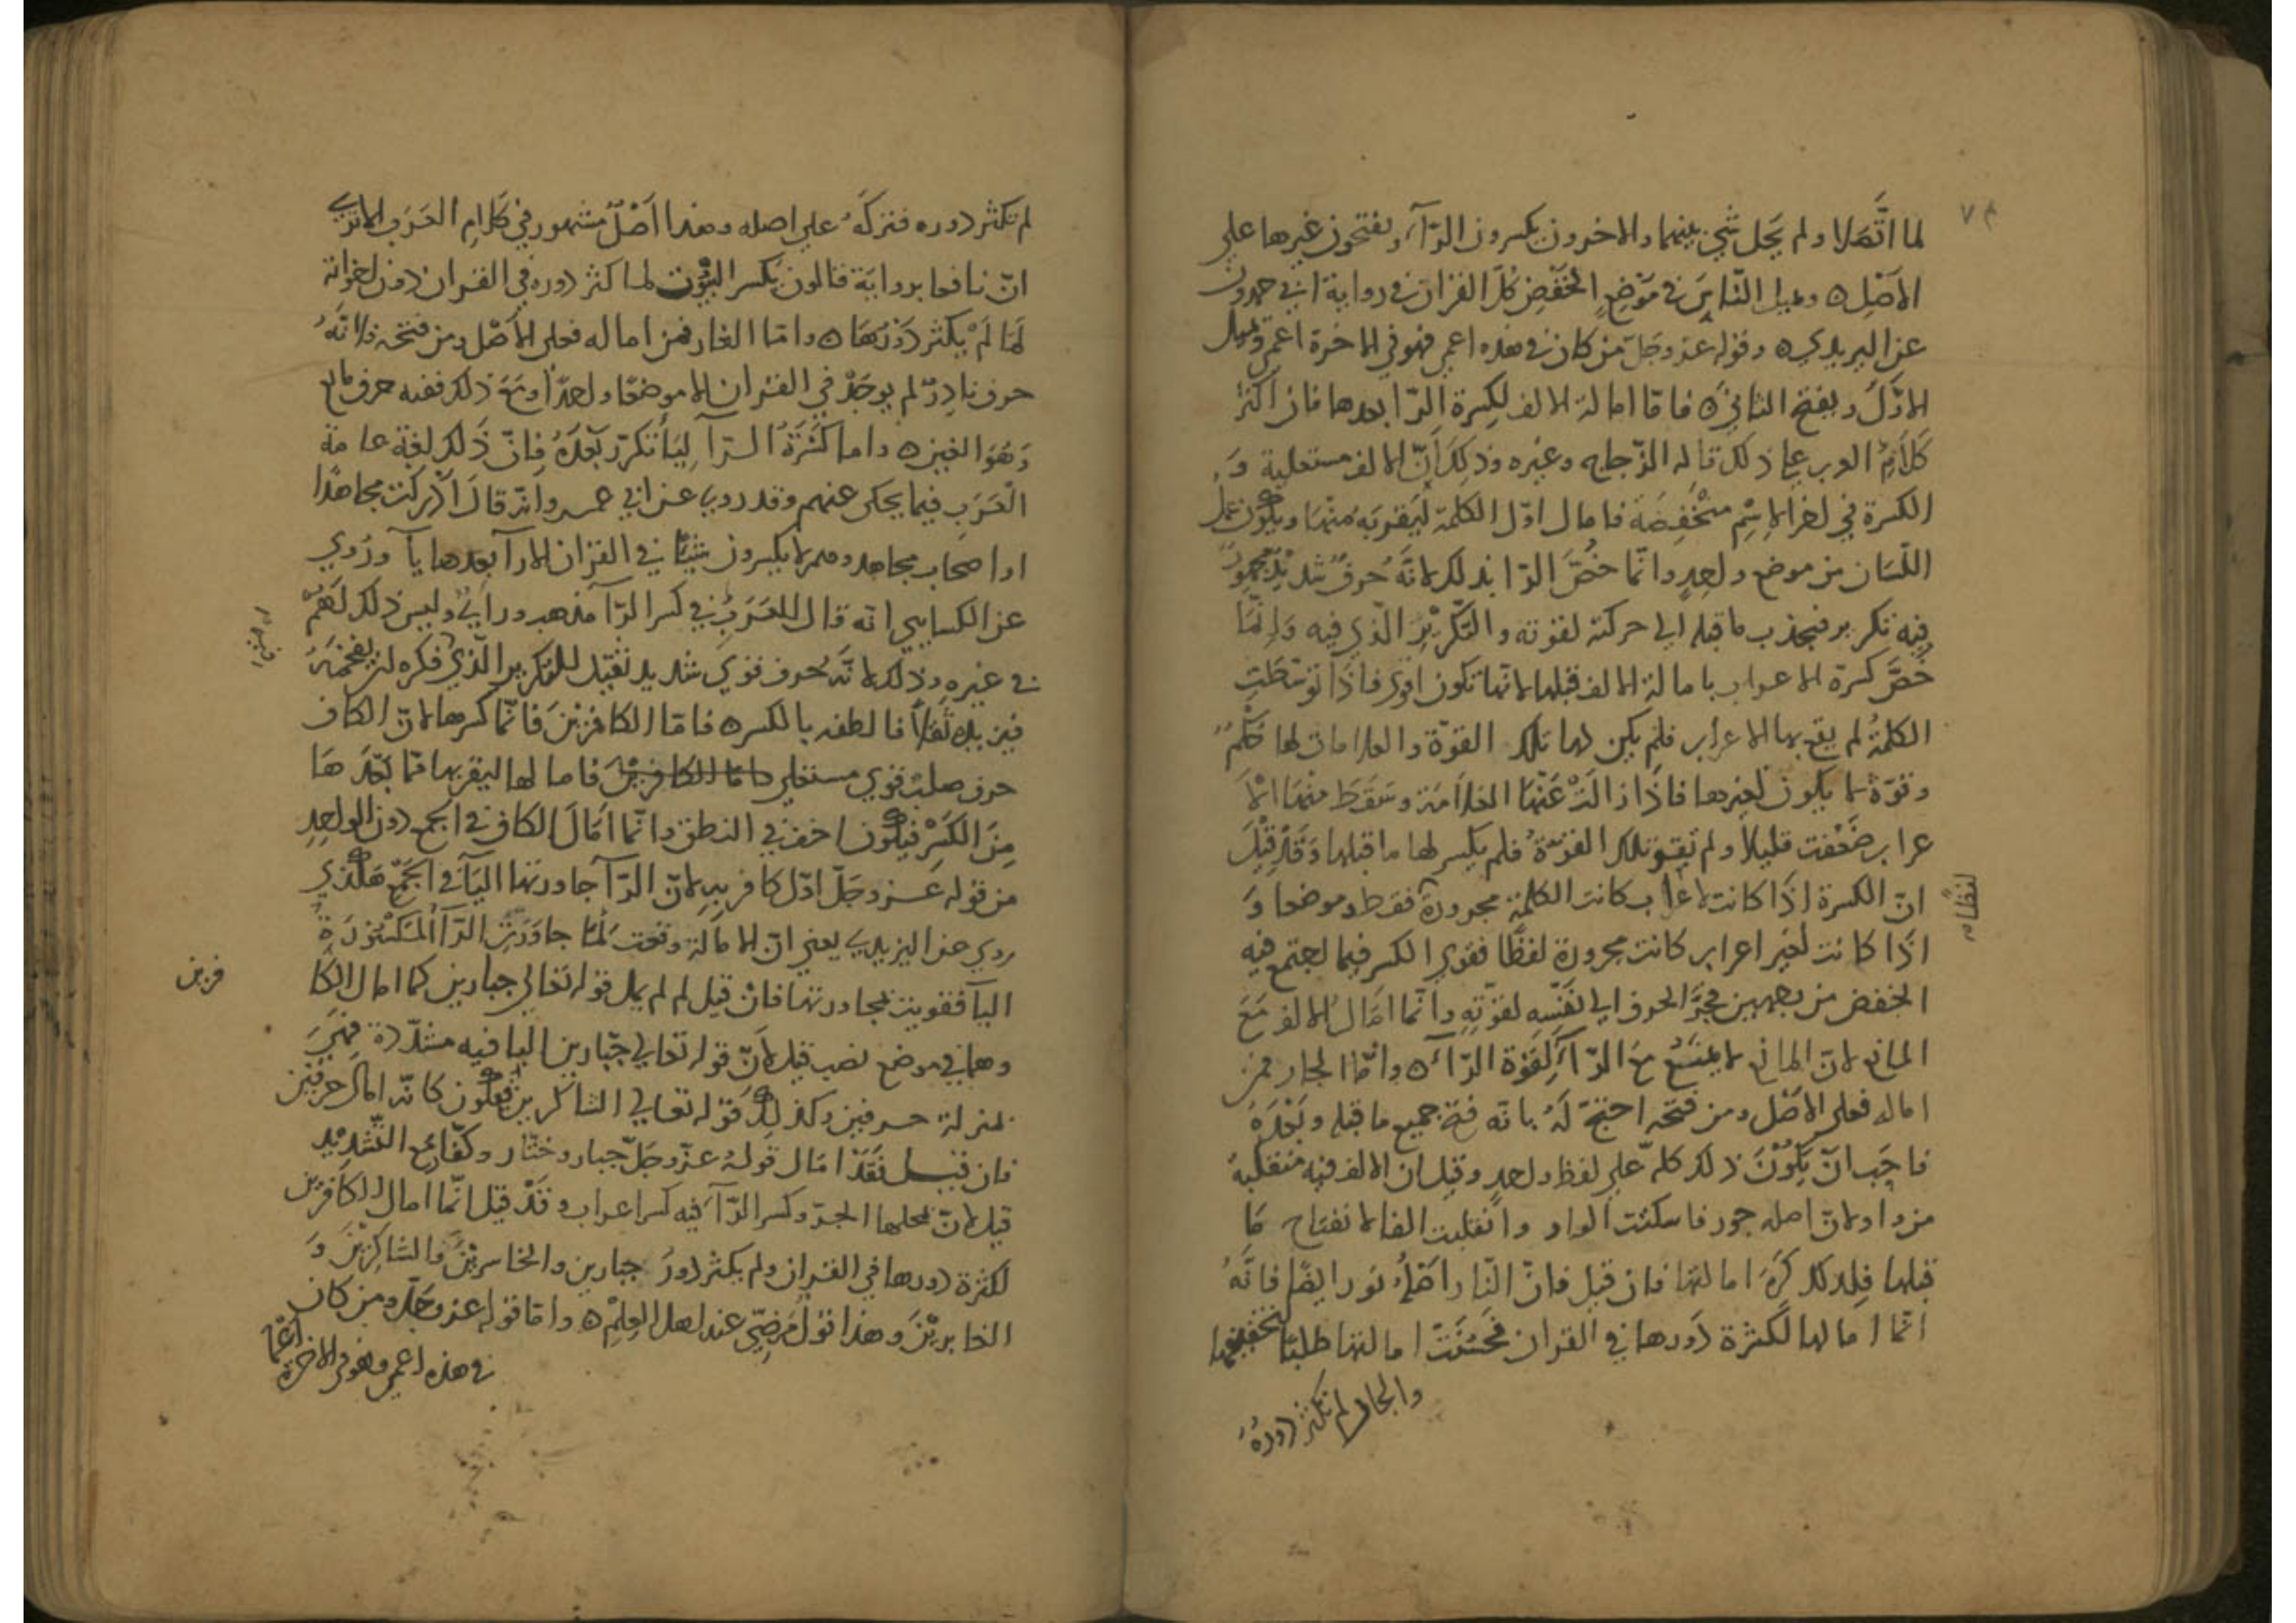 لما اتصلا ولم يحل شي بينهما والاخرون يكسرون الرآء ويفتحون غيرها علي
الاصل ه ويميل الناس في موضع الخفض كل القران في رواية ابي حمدون
عن اليزيدي ه وقوله عز وجل من كان في هذه اعمي فهو في الاخرة اعمي ويميل
الاول ويفتح الثاني ه فاما امالة الالف لكسرة الرا بعدها فان اكثر
كلام العرب علي ذلك قاله الزجاج وغيره وذلك ان الالف مستعلية و
الكسرة في اخر الاسم منخفضة فامال اول الكلمة ليقربه منها ويكون عمل
اللسان من موضع واحد وانما خص الرا بذلك لانه حرف شديد مجهور
فيه تكرير فيجذب ما قبله الي حركته لقوته والتكرير الذي فيه وانما
خص كسرة الاعراب بامالة الالف قبلها لانها تكون اقوي فاذا توسطت
الكلمة لم يقع بها الاعراب فلم يكن لها تلك القوة والعلامات لها حكم
وقوة لا يكون لغيرها فاذا زالت عنها العلامة وسقط منها الا
عراب ضعفت قليلا ولم تبق تلك القوة فلم يكسر لها ما قبلها وقد قيل
ان الكسرة اذا كانت لاعراب كانت الكلمة مجرورة فقط وموضعا و
لفظا
اذا كانت لغير اعراب كانت مجرورة لفظا فقوي الكسر فيما اجتمع فيه
الخفض من جهتين فجر الحرف الي نفسه لقوته وانما امال الالف مع
المانع لان المانع لا يمنع مع الرآء لقوة الرآء ه واما الجار فمن
اماله فعلي الاصل ومن فتحه احتج له بانه فتح جميع ما قبله وبعده
فاحب ان يكون ذلك كله علي لفظ واحد وقيل ان الالف فيه منقلبة
من واو لان اصله جور فاسكنت الواو وانقلبت الفا لانفتاح ما
قبلها فلذلك كره امالتها فان قيل فان النار اصله نور ايضا فانه
انما امالها لكثرة دورها في القران فحسنت امالتها طلبا لتخفيفها
والجار لم تكثر دوره
لم تكثر دوره فتركه علي اصله وهذا اصل مشهور في كلام العرب الا تري
ان نافعا برواية قالون يكسر البيوت لما كثر دوره في القران دون اخواته
لما لم يكثر دورها ه واما الغار فمن اماله فعلي الاصل ومن فتحه فلانه
حرف نادر لم يوجد في القران الا موضعا واحدا ومع ذلك ففيه حرف مانع
وهو الغين ه واما كسرة الرآ ليا تكرر بعده فان ذلك لغة عامة
العرب فيما يحكي عنهم وقد روي عن ابي عمرو انه قال ادركت مجاهدا
او اصحاب مجاهد وهم لا يكسرون شيئا في القران الا رآ بعدها يآ وروي
عن الكسايي انه قال للعرب في كسر الرآ مذهب وراي وليس ذلك لهم
في غيره وذلك لانه حرف قوي شديد ثقيل للتكرير الذي فكره ان يفخمه
فيزيده ثقلا فالطفه بالكسر ه فاما الكافرين فانما كسرها لان الكاف
حرف صلب قوي مستعلي فامالها ليقربها مما بعدها
من الكسر فيكون اخف في النطق وانما امال الكاف في الجمع دون الواحد
من قوله عز وجل اول كافر به لان الرآ جاورتها اليآ في الجمع هكذي
روي عن اليزيدي يعني ان الامالة وقعت لما جاورت الرآ المكسورة
اليآ فقويت لمجاورتها فان قيل لم لم يمل قوله تعالي جبارين كما امال الكا
فرين
وهما في موضع نصب قيل لان قوله تعالي جبارين اليا فيه مشددة فهي
بمنزلة حرفين وكذلك قوله تعالي الشاكرين فيكون كانه امال حرفين
فان قيل فقد امال قوله عز وجل جبار وختار وكفار مع التشديد
قيل لان محلها الجر وكسر الرآ فيه كسر اعراب وقد قيل انما امال الكافرين
لكثرة دورها في القران ولم يكثر دور جبارين والخاسرين والشاكرين و
الغابرين وهذا قول مرضي عند اهل العلم ه واما قوله عز وجل ومن كان
في هذه اعمي فهو في الاخرة اعمي